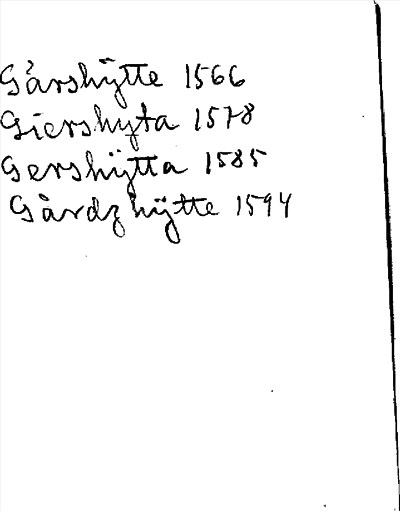 Gårshÿtte 1566
Giershyta 1578
Gershÿtta 1585
Gårdzhÿtte 1594